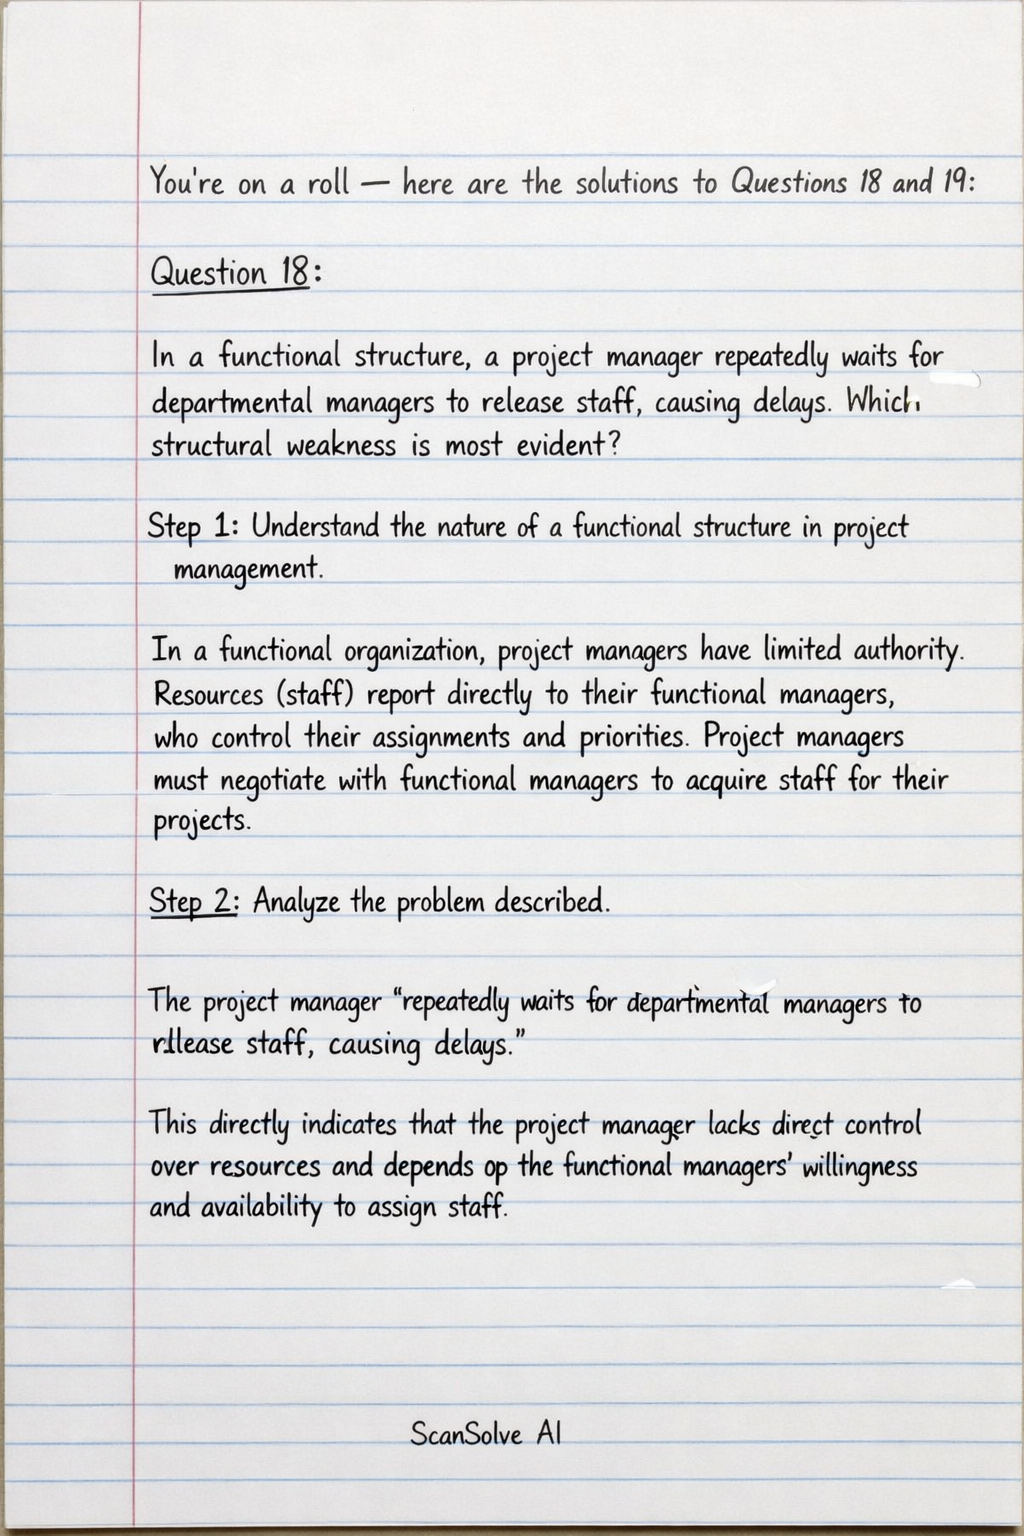 You're on a roll — here are the solutions to Questions 18 and 19:
Question 18:
In a functional structure, a project manager repeatedly waits for
departmental managers to release staff, causing delays. Which
structural weakness is most evident?
Step 1: Understand the nature of a functional structure in project
management.
In a functional organization, project managers have limited authority.
Resources (staff) report directly to their functional managers,
who control their assignments and priorities. Project managers
must negotiate with functional managers to acquire staff for their
projects.
Step 2: Analyze the problem described.
The project manager “repeatedly waits for departmental managers to
rllease staff, causing delays.”
This directly indicates that the project manager lacks direct control
over resources and depends op the functional managers' willingness
and availability to assign staff.
ScanSolve AI